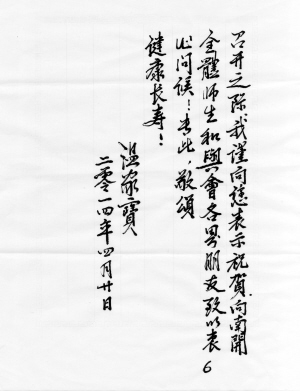 召开之际我谨向您表示祝贺.向南開
全體师生和與會各界朋友致以衷
心问候！专此，敬頌
健康长寿！
温家寶
二零一四年四月廿日
6